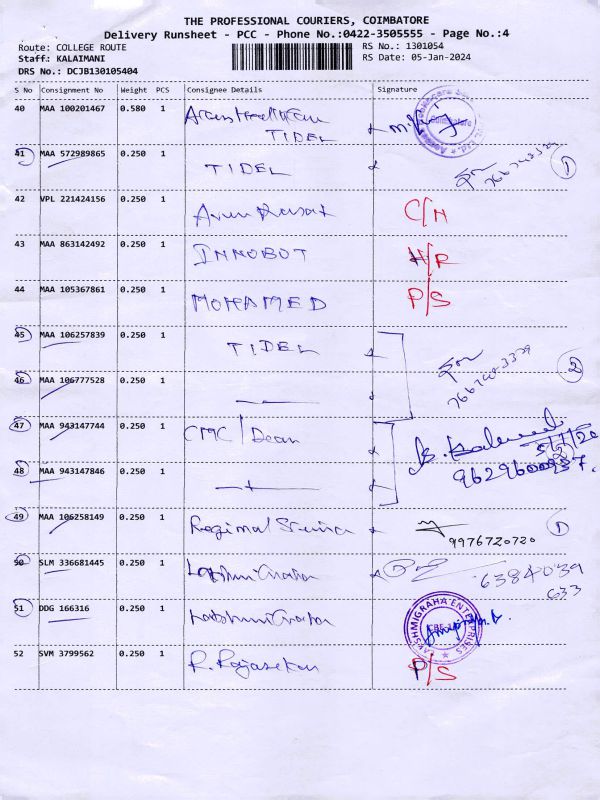 THE PROFESSIONAL COURIERS, COIMBATORE
Delivery Runsheet - PCC - Phone No.:0422-3505555 - Page No.:4
Route: COLLEGE ROUTE
RS No.: 1301054
Staff: KALAIMANI
RS Date: 05-Jan-2024
DRS No.: DCJB130105404
S No Consignment No Weight PCS Consignee Details Signature
40 MAA 100201467 0.580 1
TIDEL
41 MAA 572989865 0.250 1 TIDEL 1
42 VPL 221424156 0.250 1 C/N
43 MAA 863142492 0.250 1 INNOBOT H/R
44 MAA 105367861 0.250 1 MOHAMED P/S
45 MAA 106257839 0.250 1 TIDEL
46 MAA 106777528 0.250 1 2
47 MAA 943147744 0.250 1 CMC/Dean
48 MAA 943147846 0.250 1 9629600937.
49 MAA 106258149 0.250 1 Regional 1
9976720720
50 SLM 336681445 0.250 1 Lakshmi Graha 6384039
633
51 DDG 166316 0.250 1 Lakshmi Graha LAKSHMIGRAHA ENTERPRISES
52 SVM 3799562 0.250 1 R. Rajasekar P/S